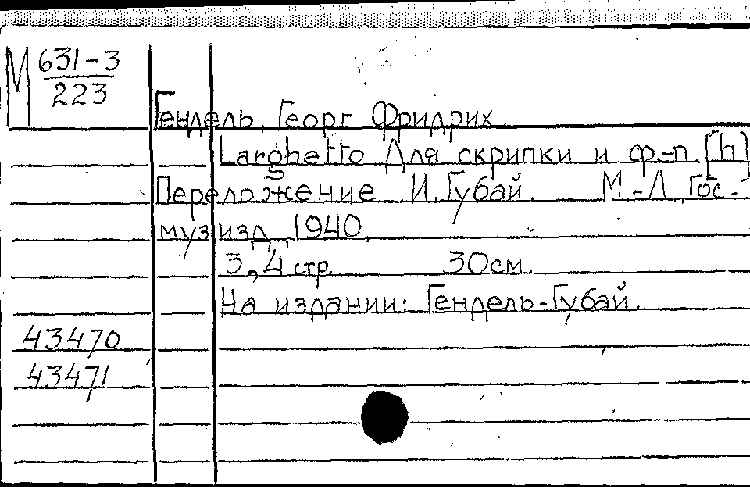 М 631-3
223
Гендель, Георг Фридрих
Larghetto Для скрипки и ф.-п. [h]
Переложение И. Губай. М.-Л., Гос.
муз. изд., 1940.
3, 4 стр. 30 см.
На издании: Гендель-Губай.
43470
43471